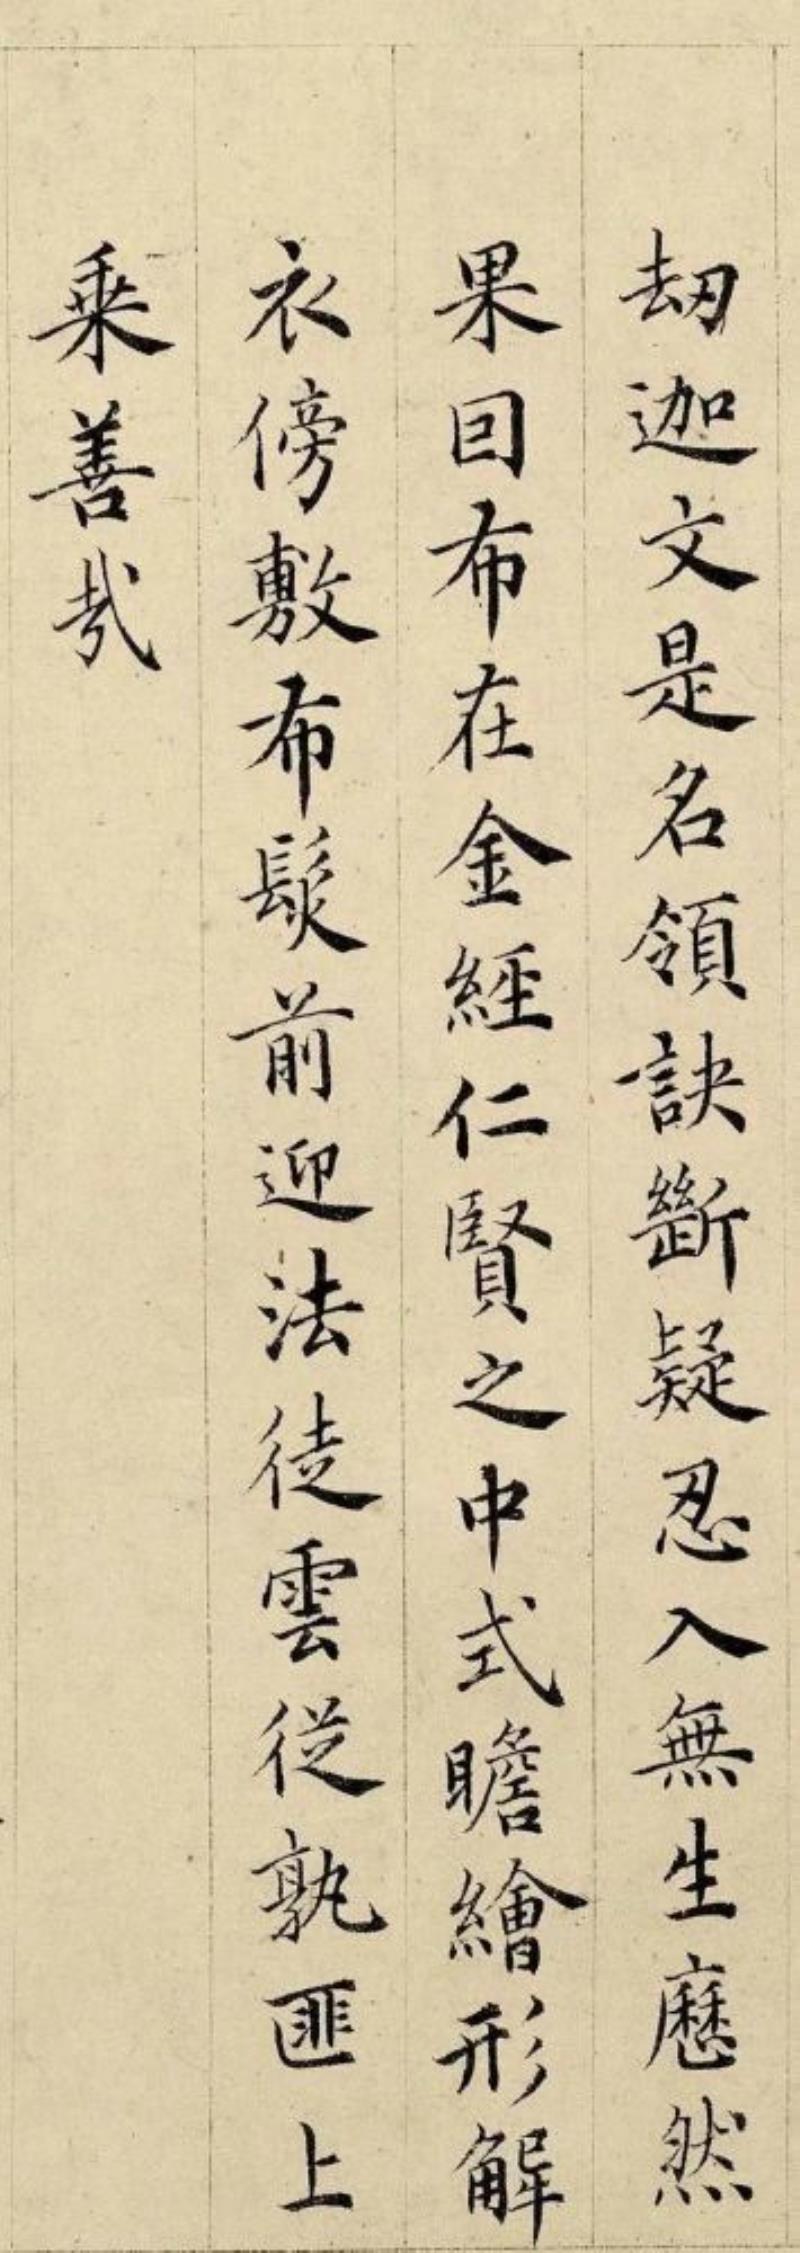 刼迦文是名領訣斷疑忍入無生應然
果囙布在金經仁賢之中式瞻繪形解
衣傍敷布髮前迎法徒雲從孰匪上
乘善哉